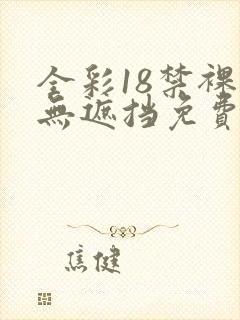 全彩18禁裸
無遮挡免費
焦健